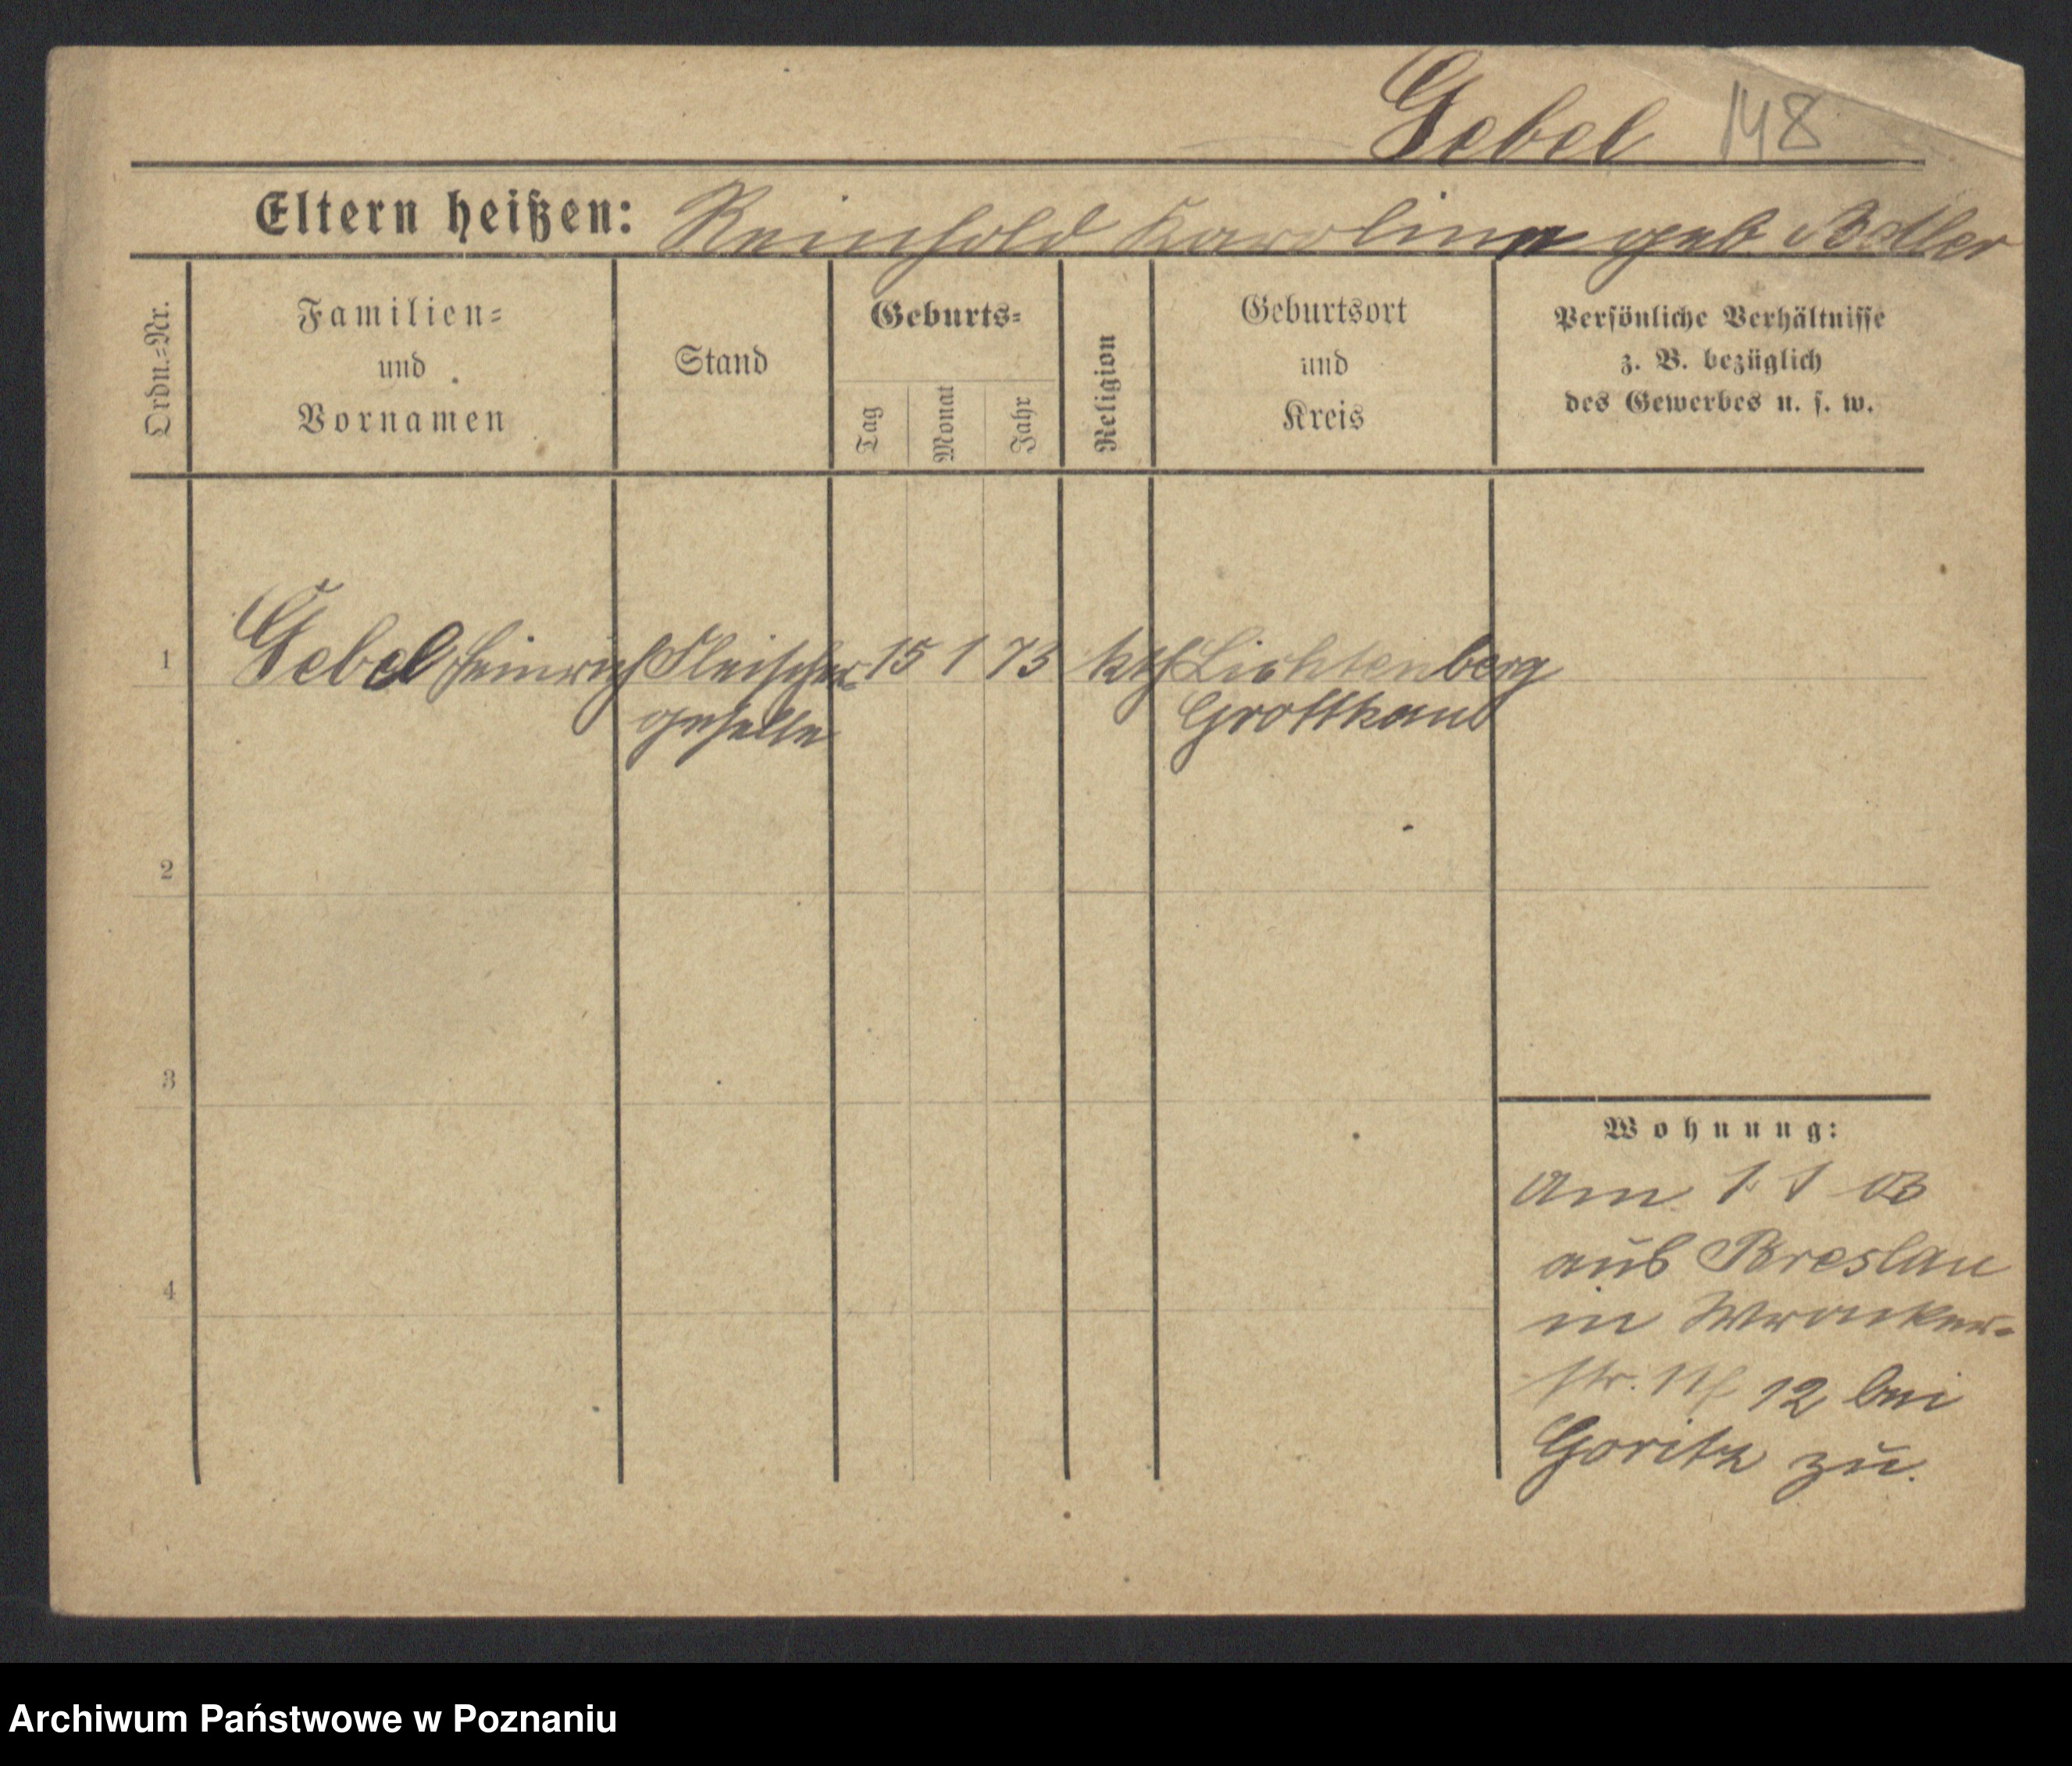 Gebel 148
Eltern heißen: Reinhold Karolina geb Adler
Ordn.=Nr.
Familien=
und
Vornamen
Stand
Geburts=
Tag
Monat
Jahr
Religion
Geburtsort
und
Kreis
Persönliche Verhältnisse
z. B. bezüglich
des Gewerbes u. s. w.
1 Gebel Heinrich Fleischer 15 1 73 kth Lichtenberg
geselle Grottkau
2
3
4
Wohnung:
Am 1 1 03
aus Breslau
in Wronker-
str. 12 bei
Goritz zu.
Archiwum Państwowe w Poznaniu